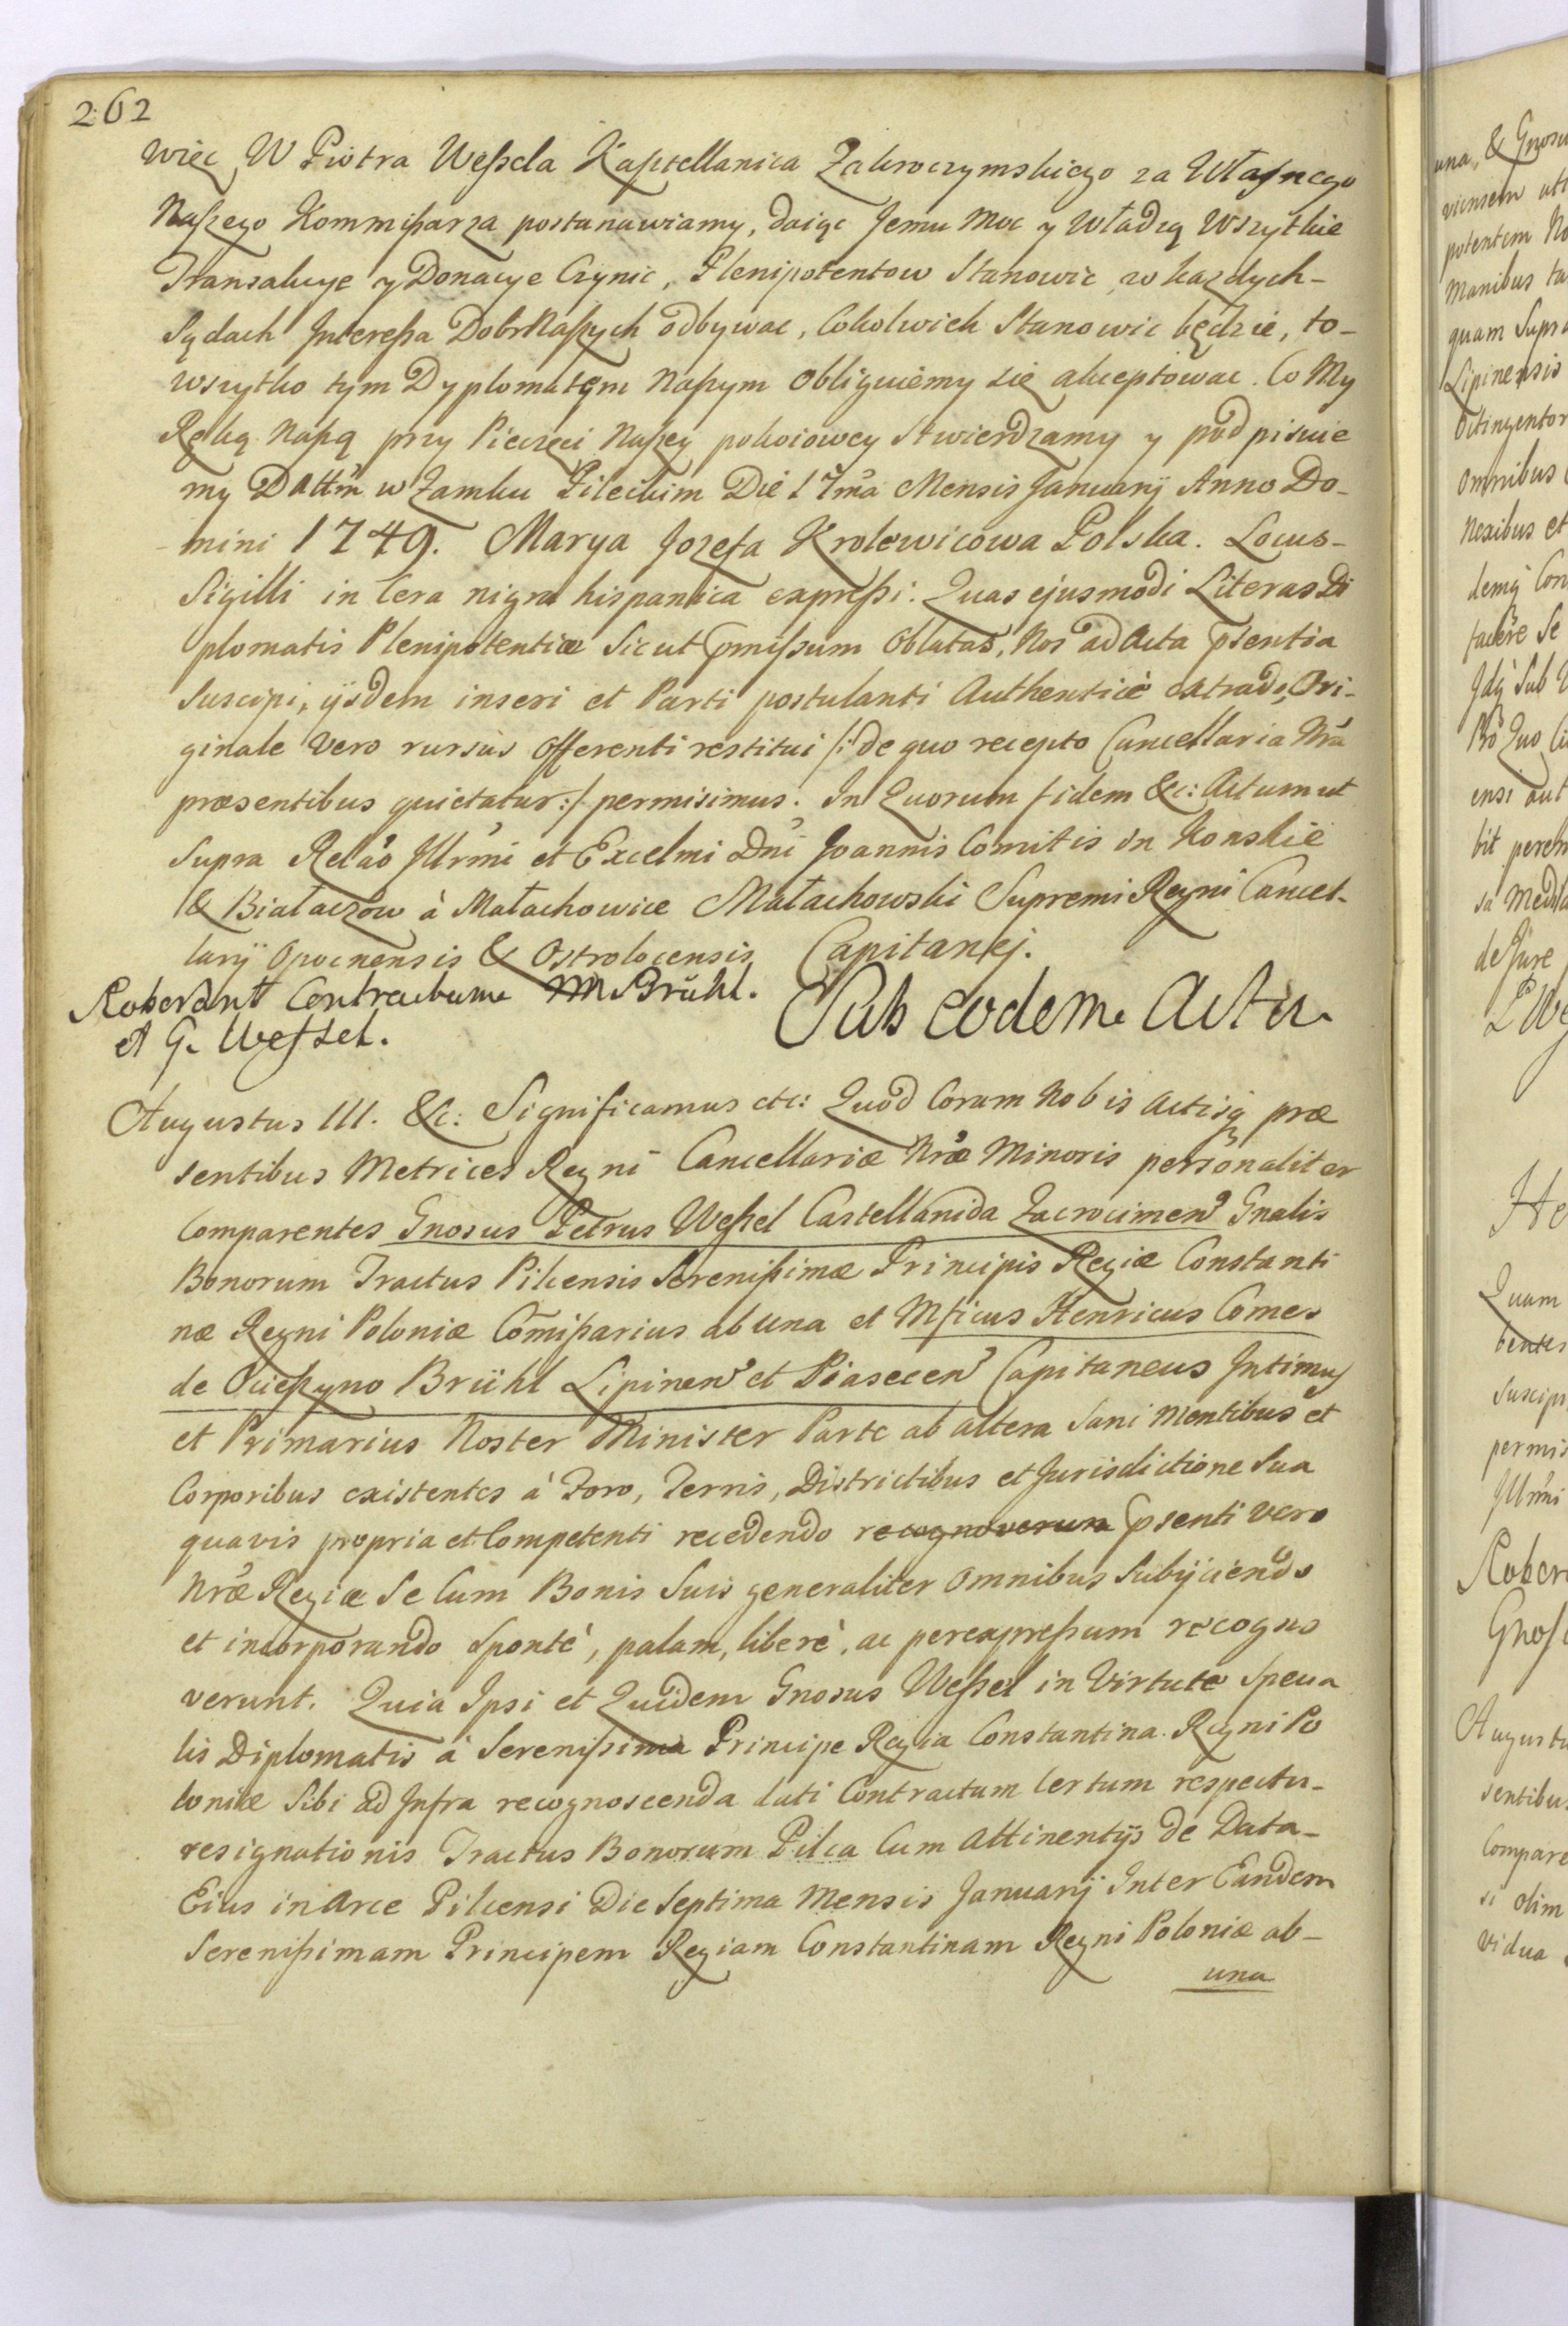 262
więc W Piotra Weßela Kasztellanica Zakroczymskiego za Własnego
Naszego Kommißarza postanawiamy, daiąc Jemu Moc y Władzą Wszytkie
Transakcye y Donacye Czynić, Plenipotentow Stanowić, w każdych-
Sądach Intereßa Dobr Naszych odbywac, Cokolwiek Stanowic będzie, to-
wszytko tym Dyplomatem Naszym obliguiemy się akceptowac. Co My
Ręką Naszą przy Pieczęci Naszey pokoiowey Stwierdzamy y podpisuie
my Dattm w Zamku Pileckim Die 17ma Mensis Januarij Anno Do-
mini 1749. Marya Jozefa Krolewicowa Polska. Locus-
Sigilli in Cera nigra hispanica expreßi. Quas ejusmodi Literas Di
plomatis Plenipotentiæ Sicut pmißum Oblatas, Nos ad Acta psentia
Suscipi, ijsdem inseri et Parti postulanti Authenticè extradi, Ori-
ginale vero rursùs Offerenti restitui /: de quo recepto Cancellaria Nra
præsentibus quietatur :/ permisimus. In Quorum fidem &c: Actum ut
Supra Relao Illrmi et Excelmi Dni Joannis Comitis in Konskie
& Białaczow à Małachowice Małachowski Supremi Regni Cancel-
larij Opocnensis & Ostrolocensis Capitanej.
Roborant Contractum M Brühl.
et G. Weſsel.
Sub eodem Actu
Augustus III. &c: Significamus etc: Quod Coram Nobis Actisq præ
sentibus Metrices Regni Cancellariæ Nræ Minoris personaliter
Comparentes Gnosus Petrus Weßel Castellanida Zacrocimen Gnalis
Bonorum Tractus Pilcensis Sereniſsimæ Principis Regiæ Constanti
næ Regni Poloniæ Comißarius ab una et Mficus Henricus Comes
de Ocieszyno Brühl Lipinen et Piasecen Capitaneus Intimus
et Primarius Noster Minister Parte ab altera Sani Mentibus et
Corporibus existentes à Foro, Terris, Districtibus et Jurisdictione Sua
quavis propria et Competenti recedendo recognoverun psenti vero
Nræ Regiæ Se Cum Bonis Suis generaliter Omnibus Subijciendo
et incorporando Spontè, palam, liberè, ac perexpreßum recogno
verunt. Quia Ipsi et Quidem Gnosus Weßel in Virtute Specia
lis Diplomatis à Sereniſsima Principe Regia Constantina Regni Po
loniæ Sibi ad Infra recognoscenda dati Contractum Certum respectu-
resignationis Tractus Bonorum Pilca Cum Attinentijs de Data-
Eius in Arce Pilcensi Die Septima Mensis Januarij Inter Eandem
Sereniſsimam Principem Regiam Constantinam Regni Poloniæ ab-
una
una, & Gnosu
potentem No
manibus
quam Supra
Lipinensis
omnibus
Nexibus et
facere Se
Jdq Sub
de Jure
He
Quam
bentes
Suscipi
permis
Illrmi
Robor
Gnos
Augustu
sentibus
Compare
si olim
vidua